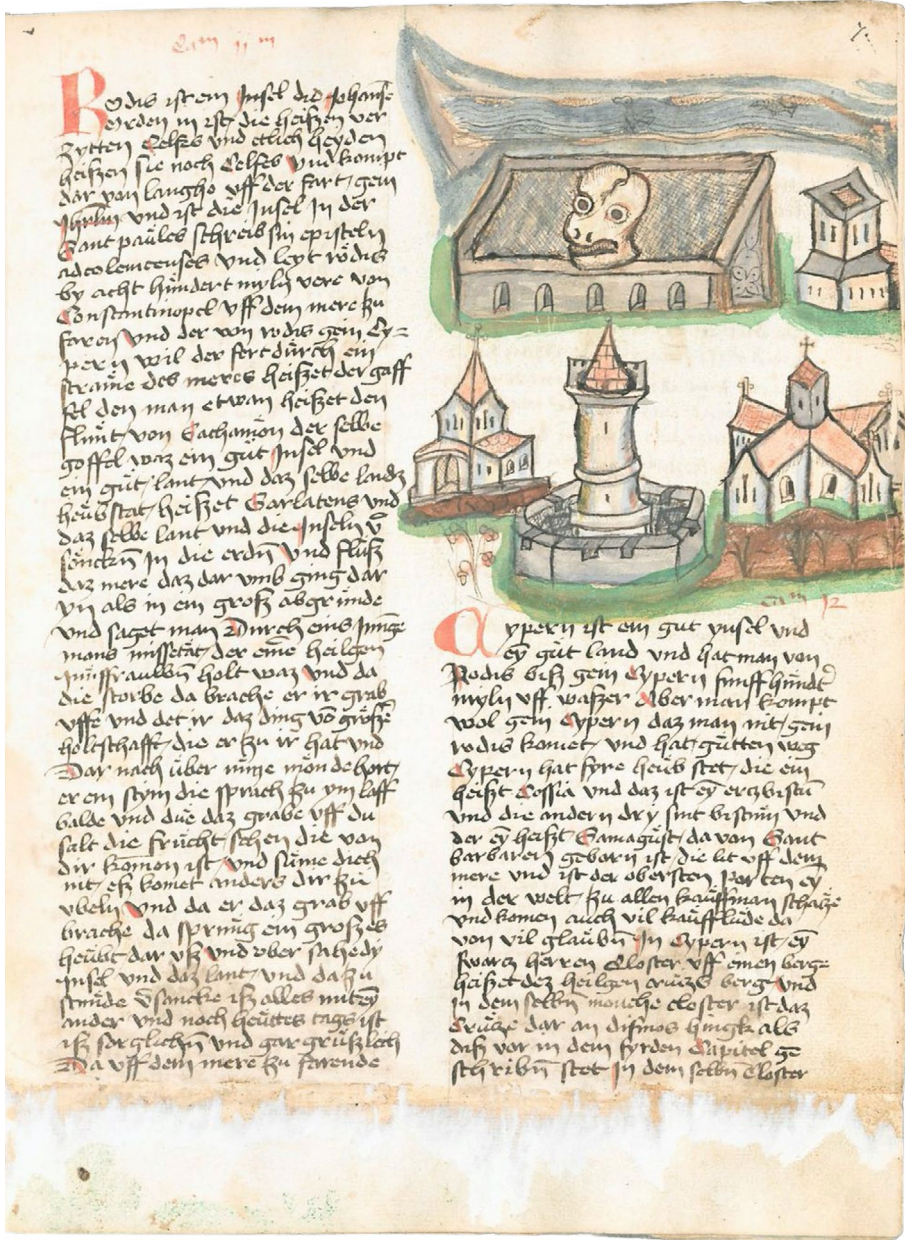 Rodis ist ein Jnsel die Johanse
Orden in ist die heissen vor
zytten Colses vnd etlich heyden
heissen sie noch Colses vnd kompt
dar von langho vff der fart gein
Jhrlm vnd ist die Jnsel Jn der
Sant paules schreib sin episteln
ad colemcenses vnd leyt rodis
by acht hundert myln vere von
Constantinopel vff dem mere zu
faren vnd der von rodis gein Cy=
pern wil der fert durch ein
strame des meres heisset der goff
fel den man etwan heisset den
flunt von Sachamon der selbe
goffel waz ein gut Jnsel vnd
ein gut lant vnd daz selbe landz
heubstat heisset Sarlatens vnd
daz selbe lant vnd die Jnseln v̄
sunckn̄ Jn die erdn̄ vnd fluss
daz mere daz dar vmb ging dar
yn als in ein gross abgrunde
vnd saget man Durch eins Junge
mans missetat der eine heilgen
Junffrauwn̄ holt waz vnd da
die storbe da brache er ir grab
vffe vnd det ir daz ding vō grosse
holtschafft die er zu ir hat vnd
Dar nach uber nune mon de hort
er ein stym die sprach zu ym laff
balde vnd due daz grabe vff du
salt die frucht sehen die von
dir komon ist vnd sume dich
nit ess komet anders dir zu
vbeln vnd da er daz grab vff
brache da sprung ein grosses
heubt dar vss vnd ober sahe dy
Jnsel vnd daz lant vnd da zu
stunde v̄sancke iss alles mit ey
ander vnd noch heuttes tags ist
iss sorglichn̄ vnd gar grusslich
Da vff dem mere zu farende
Cam 12
Cypern ist ein gut ynsel vnd
ey gut land vnd hat man von
Rodis biss gein Cypern funff hundt
myln vff wasser Aber man kompt
wol gein Cypern daz man nit gein
rodis komet vnd hat gutten weg
Cypern hat fyre heub stet die ein
heisst Cossia vnd daz ist ey ertzbistū
vnd die andern dry sint bistum vnd
der ey heisst Samagust da von Sant
barbaren geborn ist die lit vff dem
mere vnd ist der obersten porten ey
in der welt zu allen kauffman schatze
vnd komen auch vil kauff lude da
von vil glaubn̄ Jn Cypern ist ey
swarcz herren Closter vff einen berge
heisset dez heilgen cruczs berg vnd
in dem selbn̄ monche closter ist daz
Crucze dar an dismos hingk als
diss vor in dem fyrden Capitel ge
schribn̄ stet Jn dem selbn Closter